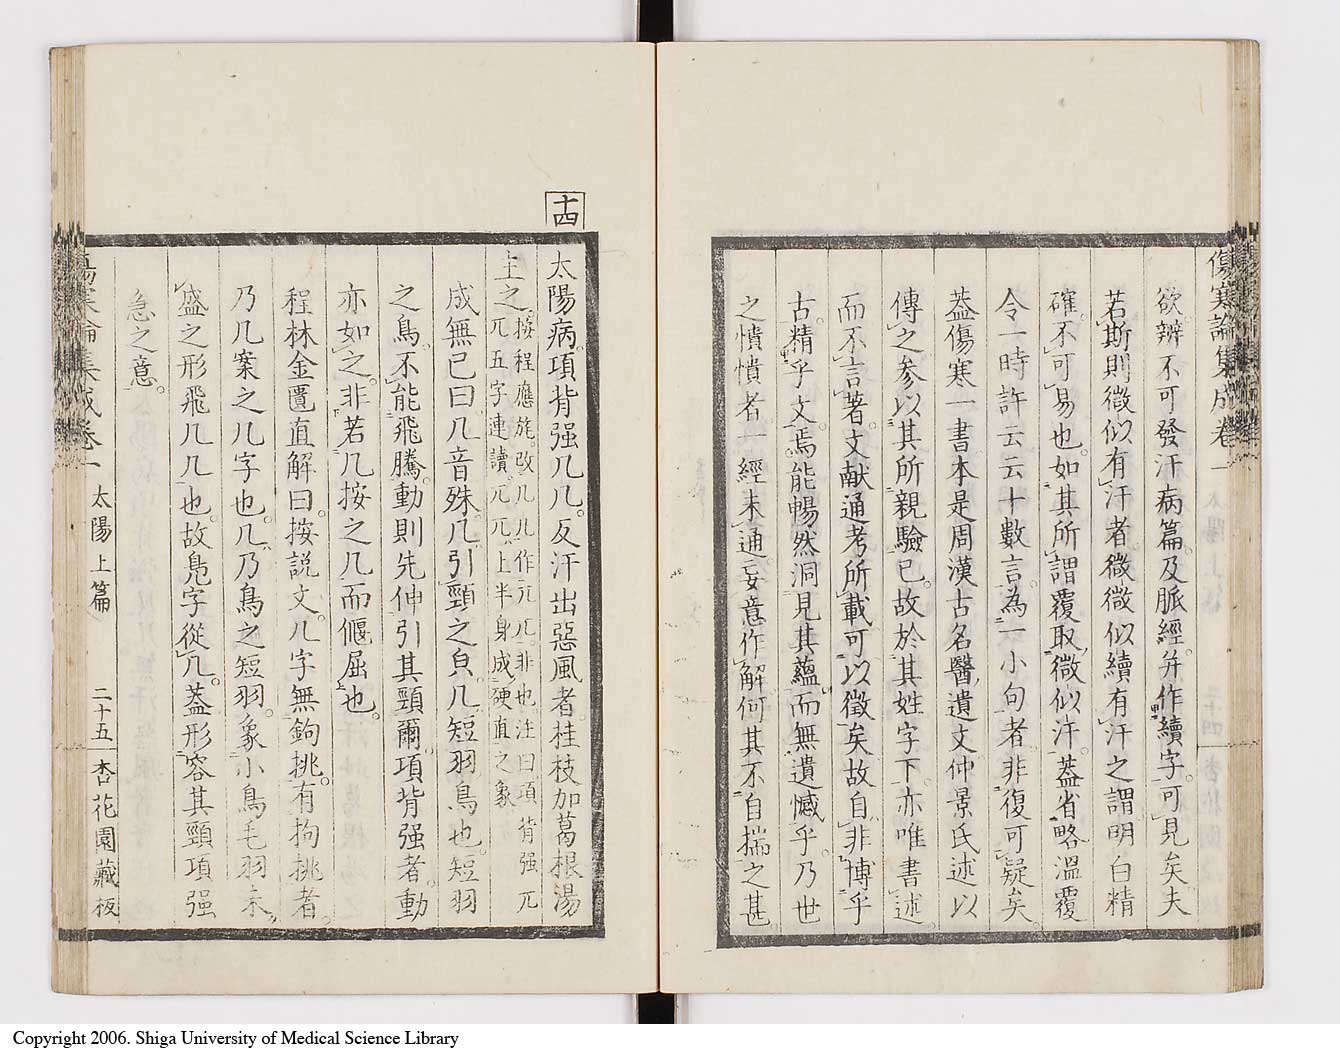 傷寒論集成卷一
欲辨不可發汗病篇及脈經并作續字可見矣夫
若斯則微似有汗者微微似續有汗之謂明白精
確不可易也如其所謂覆取微似汗蓋省略溫覆
令一時許云云十數言為一小句者非復可疑矣
蓋傷寒一書本是周漢古名醫遺文仲景氏述以
傳之參以其所親驗已故於其姓字下亦唯書述
而不言著文献通考所載可以徵矣故自非博乎
古精乎文焉能暢然洞見其蘊而無遺憾乎乃世
之憒憒者一經未通妄意作解何其不自揣之甚
十四
太陽病項背强几几反汗出惡風者桂枝加葛根湯
主之
按程應旄改几几作兀兀非也注曰項背强兀
兀五字連讀兀兀上半身成硬直之象
成無已曰几音殊几引頸之皃几短羽鳥也短羽
之鳥不能飛騰動則先伸引其頸爾項背强者動
亦如之非若几按之几而偃屈也
程林金匱直解曰按説文几字無鉤挑有拘挑者
乃几案之几字也几乃鳥之短羽象小鳥毛羽未
盛之形飛几几也故鳧字從几蓋形容其頸項强
急之意
傷寒論集成卷一 太陽上篇 二十五 杏花園藏板